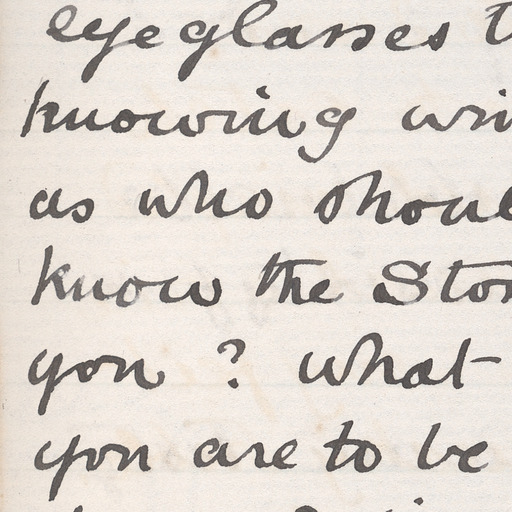 eyeglasses
knowing
as who
know the
you ? what
you are to be